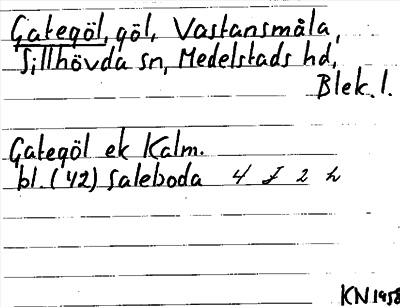 Gategöl, göl, Vastansmåla,
Sillhövda sn, Medelstads hd,
Blek. l.
Gategöl ek Kalm.
bl. ('42) Saleboda 4 f 2 h
KN 1958